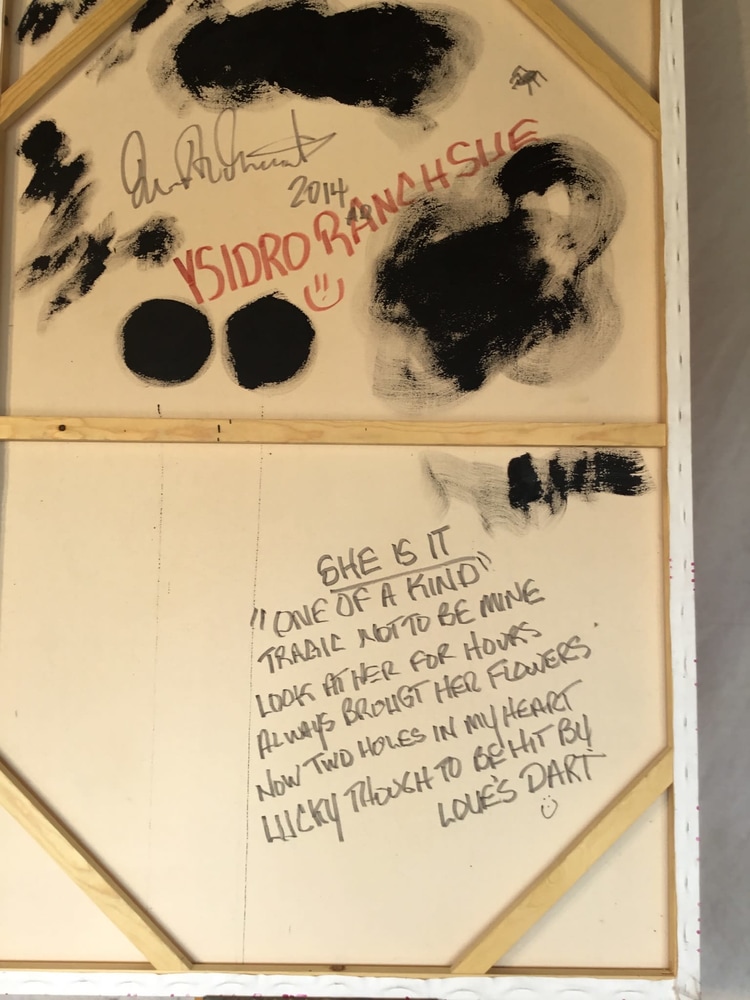 2014
YSIDRO RANCH SHE
SHE IS IT
"ONE OF A KIND"
TRAGIC NOT TO BE MINE
LOOK AT HER FOR HOURS
ALWAYS BROUGT HER FLOWERS
NOW TWO HOLES IN MY HEART
LUCKY THOUGH TO BE HIT BY
LOVE'S DART